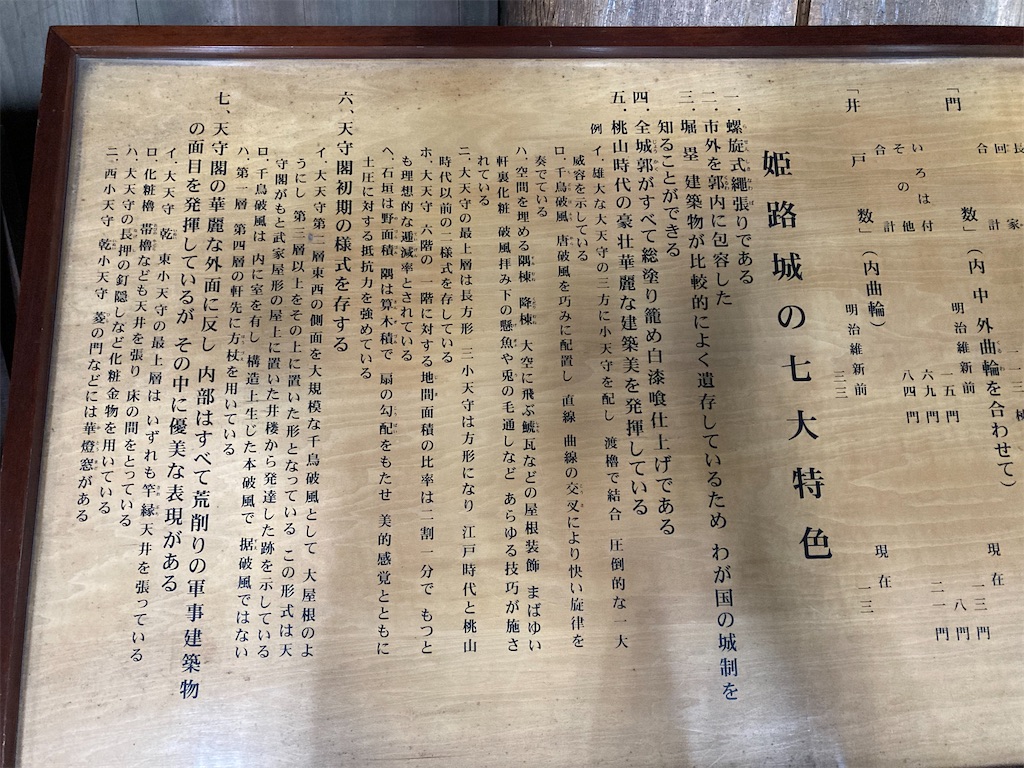 回 計
合
「門 数」(内 中 外曲輪を合わせて)
明治維新前 現在
一五門 一三門
いろは付 六九門 八門
その他 八四門 二一門
合計
「井戸数」(内曲輪)
明治維新前 現在
三三 一三
姫路城の七大特色
一. 螺旋式縄張りである
二. 市外を郭内に包容した
三. 堀 塁 建築物が比較的によく遺存しているため わが国の城制を
知ることができる
四. 全城郭がすべて総塗り籠め白漆喰仕上げである
五. 桃山時代の豪壮華麗な建築美を発揮している
例 イ. 雄大な大天守の三方に小天守を配し 渡櫓で結合 圧倒的な一大
威容を示している
ロ. 千鳥破風 唐破風を巧みに配置し 直線 曲線の交叉により快い旋律を
奏でている
ハ. 空間を埋める隅棟 降棟 大空に飛ぶ鯱瓦などの屋根装飾 まばゆい
軒裏化粧 破風拝み下の懸魚や兎の毛通しなど あらゆる技巧が施さ
れている
ニ. 大天守の最上層は長方形 三小天守は方形になり 江戸時代と桃山
時代以前の二様式を存している
ホ. 大天守 六階の 一階に対する地間面積の比率は二割一分で もつと
も理想的な逓減率とされている
ヘ. 石垣は野面積 隅は算木積で 扇の勾配をもたせ 美的感覚とともに
土圧に対する抵抗力を強めている
六、天守閣初期の様式を存する
イ. 大天守第二層東西の側面を大規模な千鳥破風として 大屋根のよ
うにし 第三層以上をその上に置いた形となっている この形式は天
守閣がもと武家屋形の屋上に置いた井楼から発達した跡を示している
ロ. 千鳥破風は 内に室を有し 構造上生じた本破風で 据破風ではない
ハ. 第一層 第四層の軒先に方杖を用いている
七、天守閣の華麗な外面に反し 内部はすべて荒削りの軍事建築物
の面目を発揮しているが その中に優美な表現がある
イ. 大天守 乾 東小天守の最上層は いずれも竿縁天井を張っている
ロ. 化粧櫓 帯櫓なども天井を張り 床の間をとっている
ハ. 大天守の長押の釘隠しなど化粧金物を用いている
ニ. 西小天守 乾小天守 菱の門などには華燈窓がある